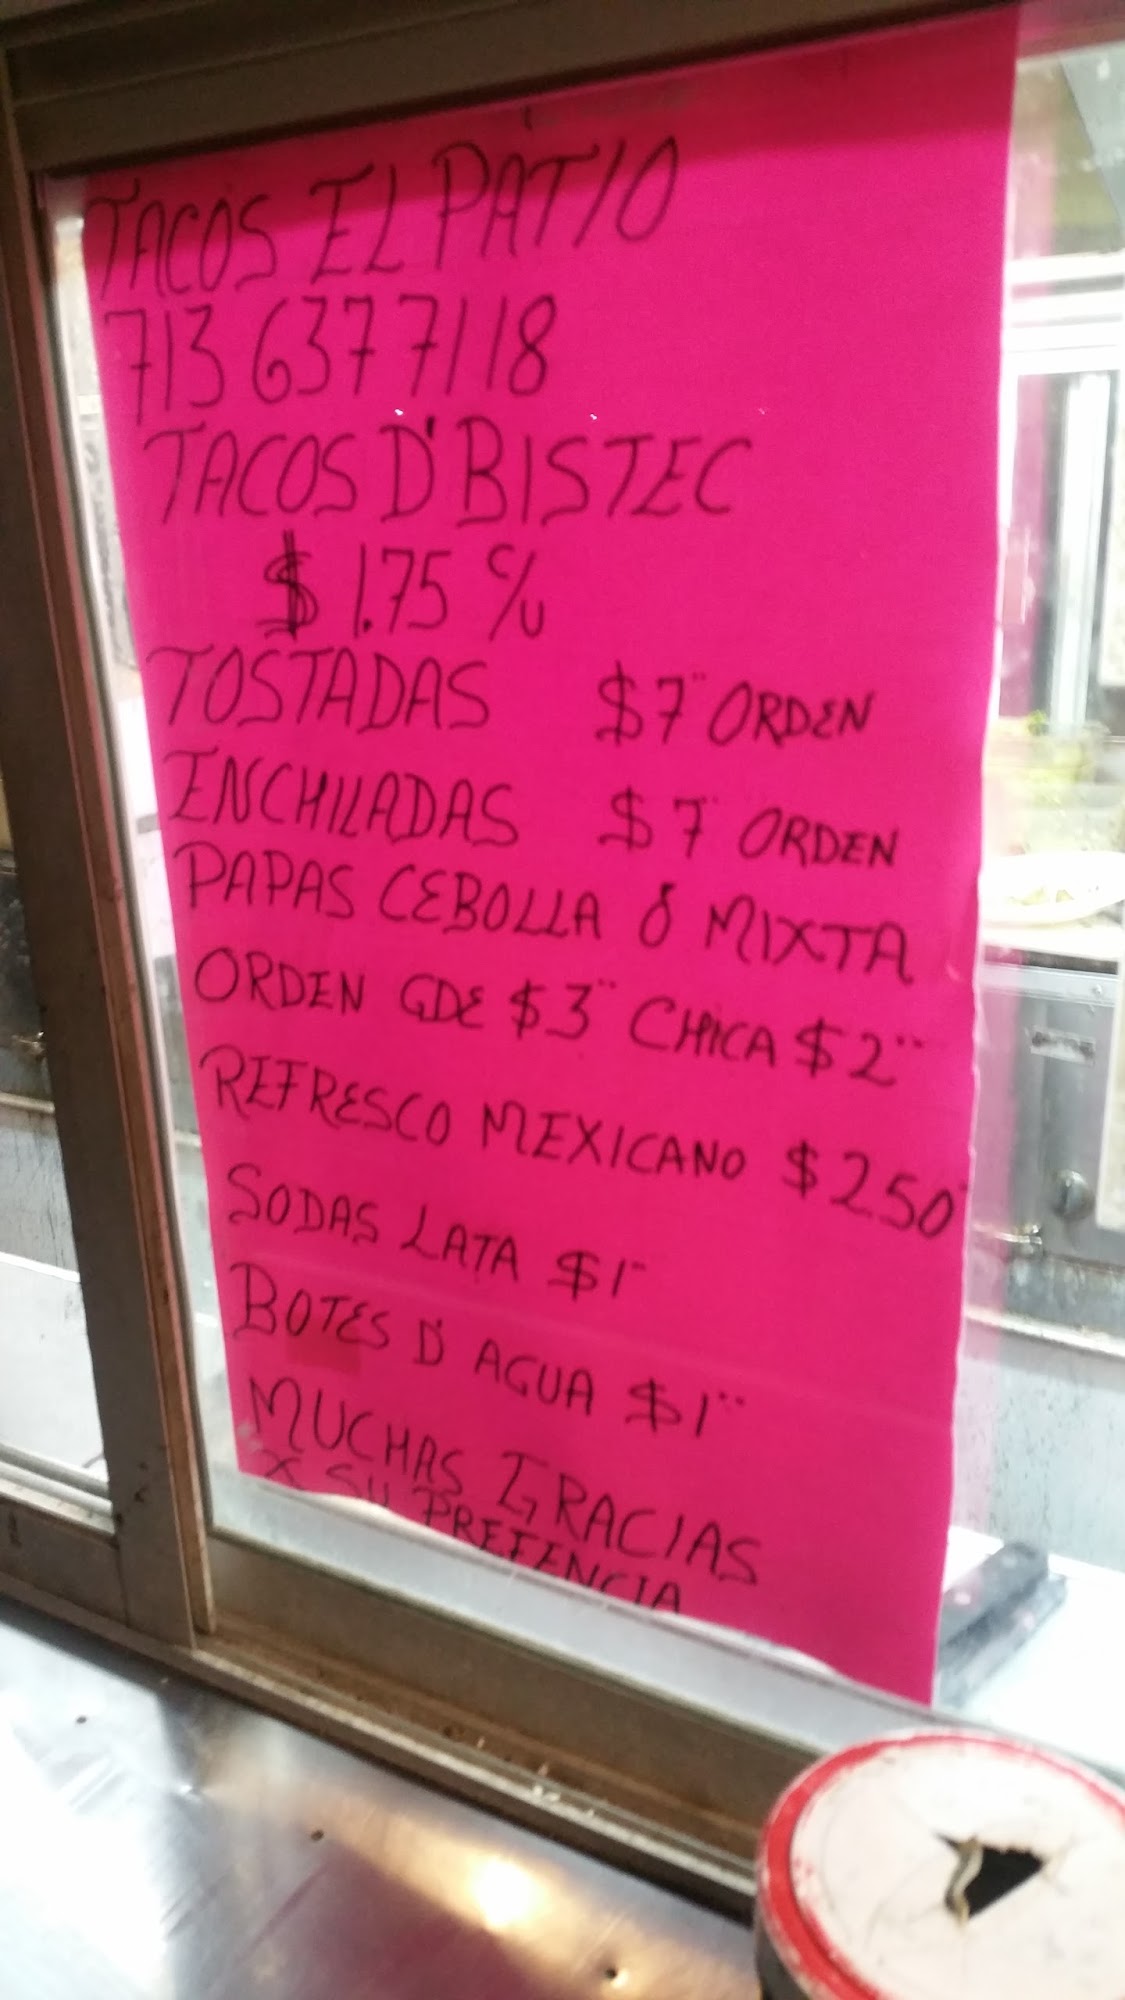 TACOS EL PATIO
713 637 7118
TACOS D'BISTEC
$ 1.75 c/u
TOSTADAS $7¨ ORDEN
ENCHILADAS $7¨ ORDEN
PAPAS CEBOLLA ó MIXTA
ORDEN GDE $3¨ CHICA $2¨
REFRESCO MEXICANO $250
SODAS LATA $1¨
BOTES D' AGUA $1¨
MUCHAS GRACIAS
X SU PREFENCIA